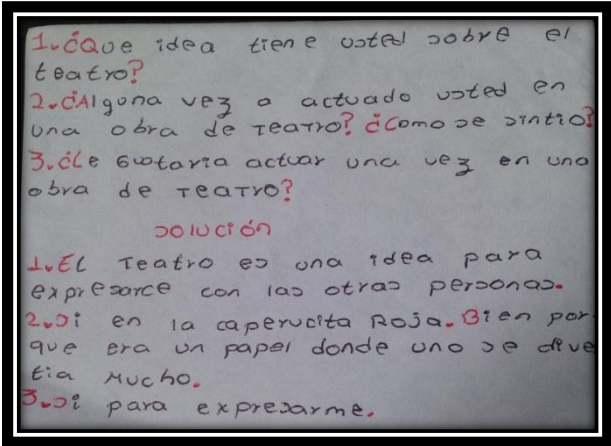 1. ¿Que idea tiene usted sobre el
teatro?
2. ¿Alguna vez a actuado usted en
una obra de Teatro? ¿Como se sintio?
3. ¿Le gustaria actuar una vez en una
obra de Teatro?
solución
1. El Teatro es una idea para
expresarce con las otras personas.
2. si en la caperucita Roja. Bien por
que era un papel donde uno se dive
tia Mucho.
3. si para expresarme.